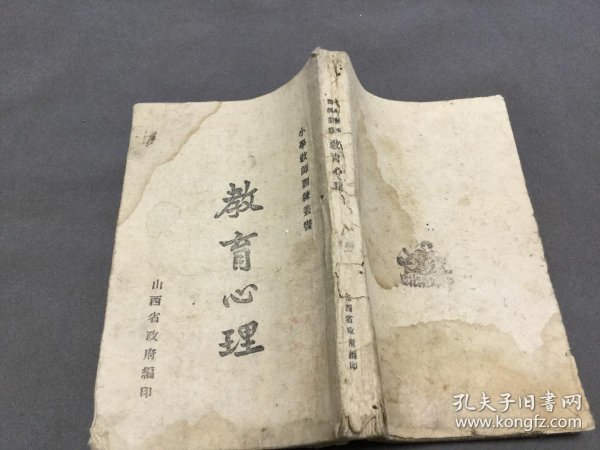 小學教師訓練叢書
教育心理
山西省政府編印
教育心理
山西省政府編印
孔夫子旧书网
www.kongfz.com